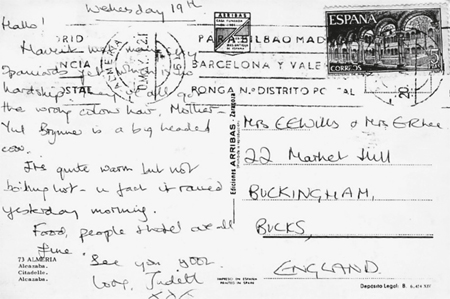 Wednesday 19th
Hallo!
Spaniards
hardship
the wrong colour hair. Mother-
Yul Brynner is a big headed
cow.
It's quite warm but not
boiling hot - in fact it rained
yesterday morning.
Food, people & hotel are all
fine.
See you
Love, Judith
XXX
73 ALMERIA
Alcazaba.
Citadelle.
Alcazaba.
ARRIBAS
ALMERIA
PARA BILBAO MAD
BARCELONA Y VALE
POSTAL
RONGA N.º DISTRITO POSTAL
ESPAÑA
CORREOS
Ediciones ARRIBAS - Zaragoza
IMPRESO EN ESPAÑA
PRINTED IN SPAIN
Mrs E E Wills & Mrs E Rhee
22 Market Hill
BUCKINGHAM,
BUCKS,
ENGLAND.
Depósito Legal: B.